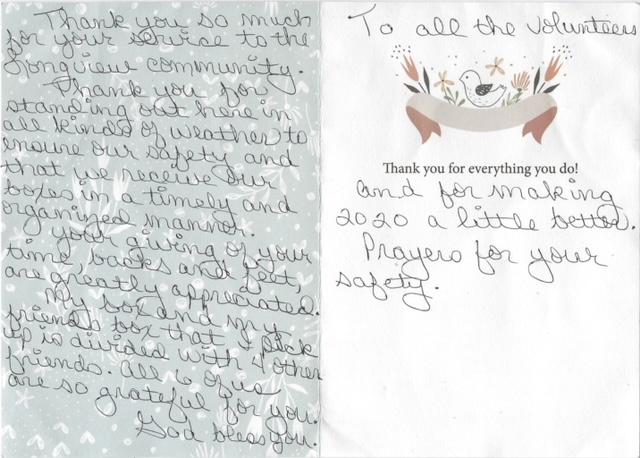 Thank you so much
for your service to the
Longview community.
Thank you for
standing out here in
all kinds of weather to
ensure our safety and
that we receive our
boxes in a timely and
organized manner.
your giving of your
time, backs and feet,
are greatly appreciated.
My box and my
friends box that I pick
up is divided with 4 other
friends. All of us
are so grateful for you.
God bless you.
To all the volunteers
Thank you for everything you do!
and for making
2020 a little better.
Prayers for your
safety.